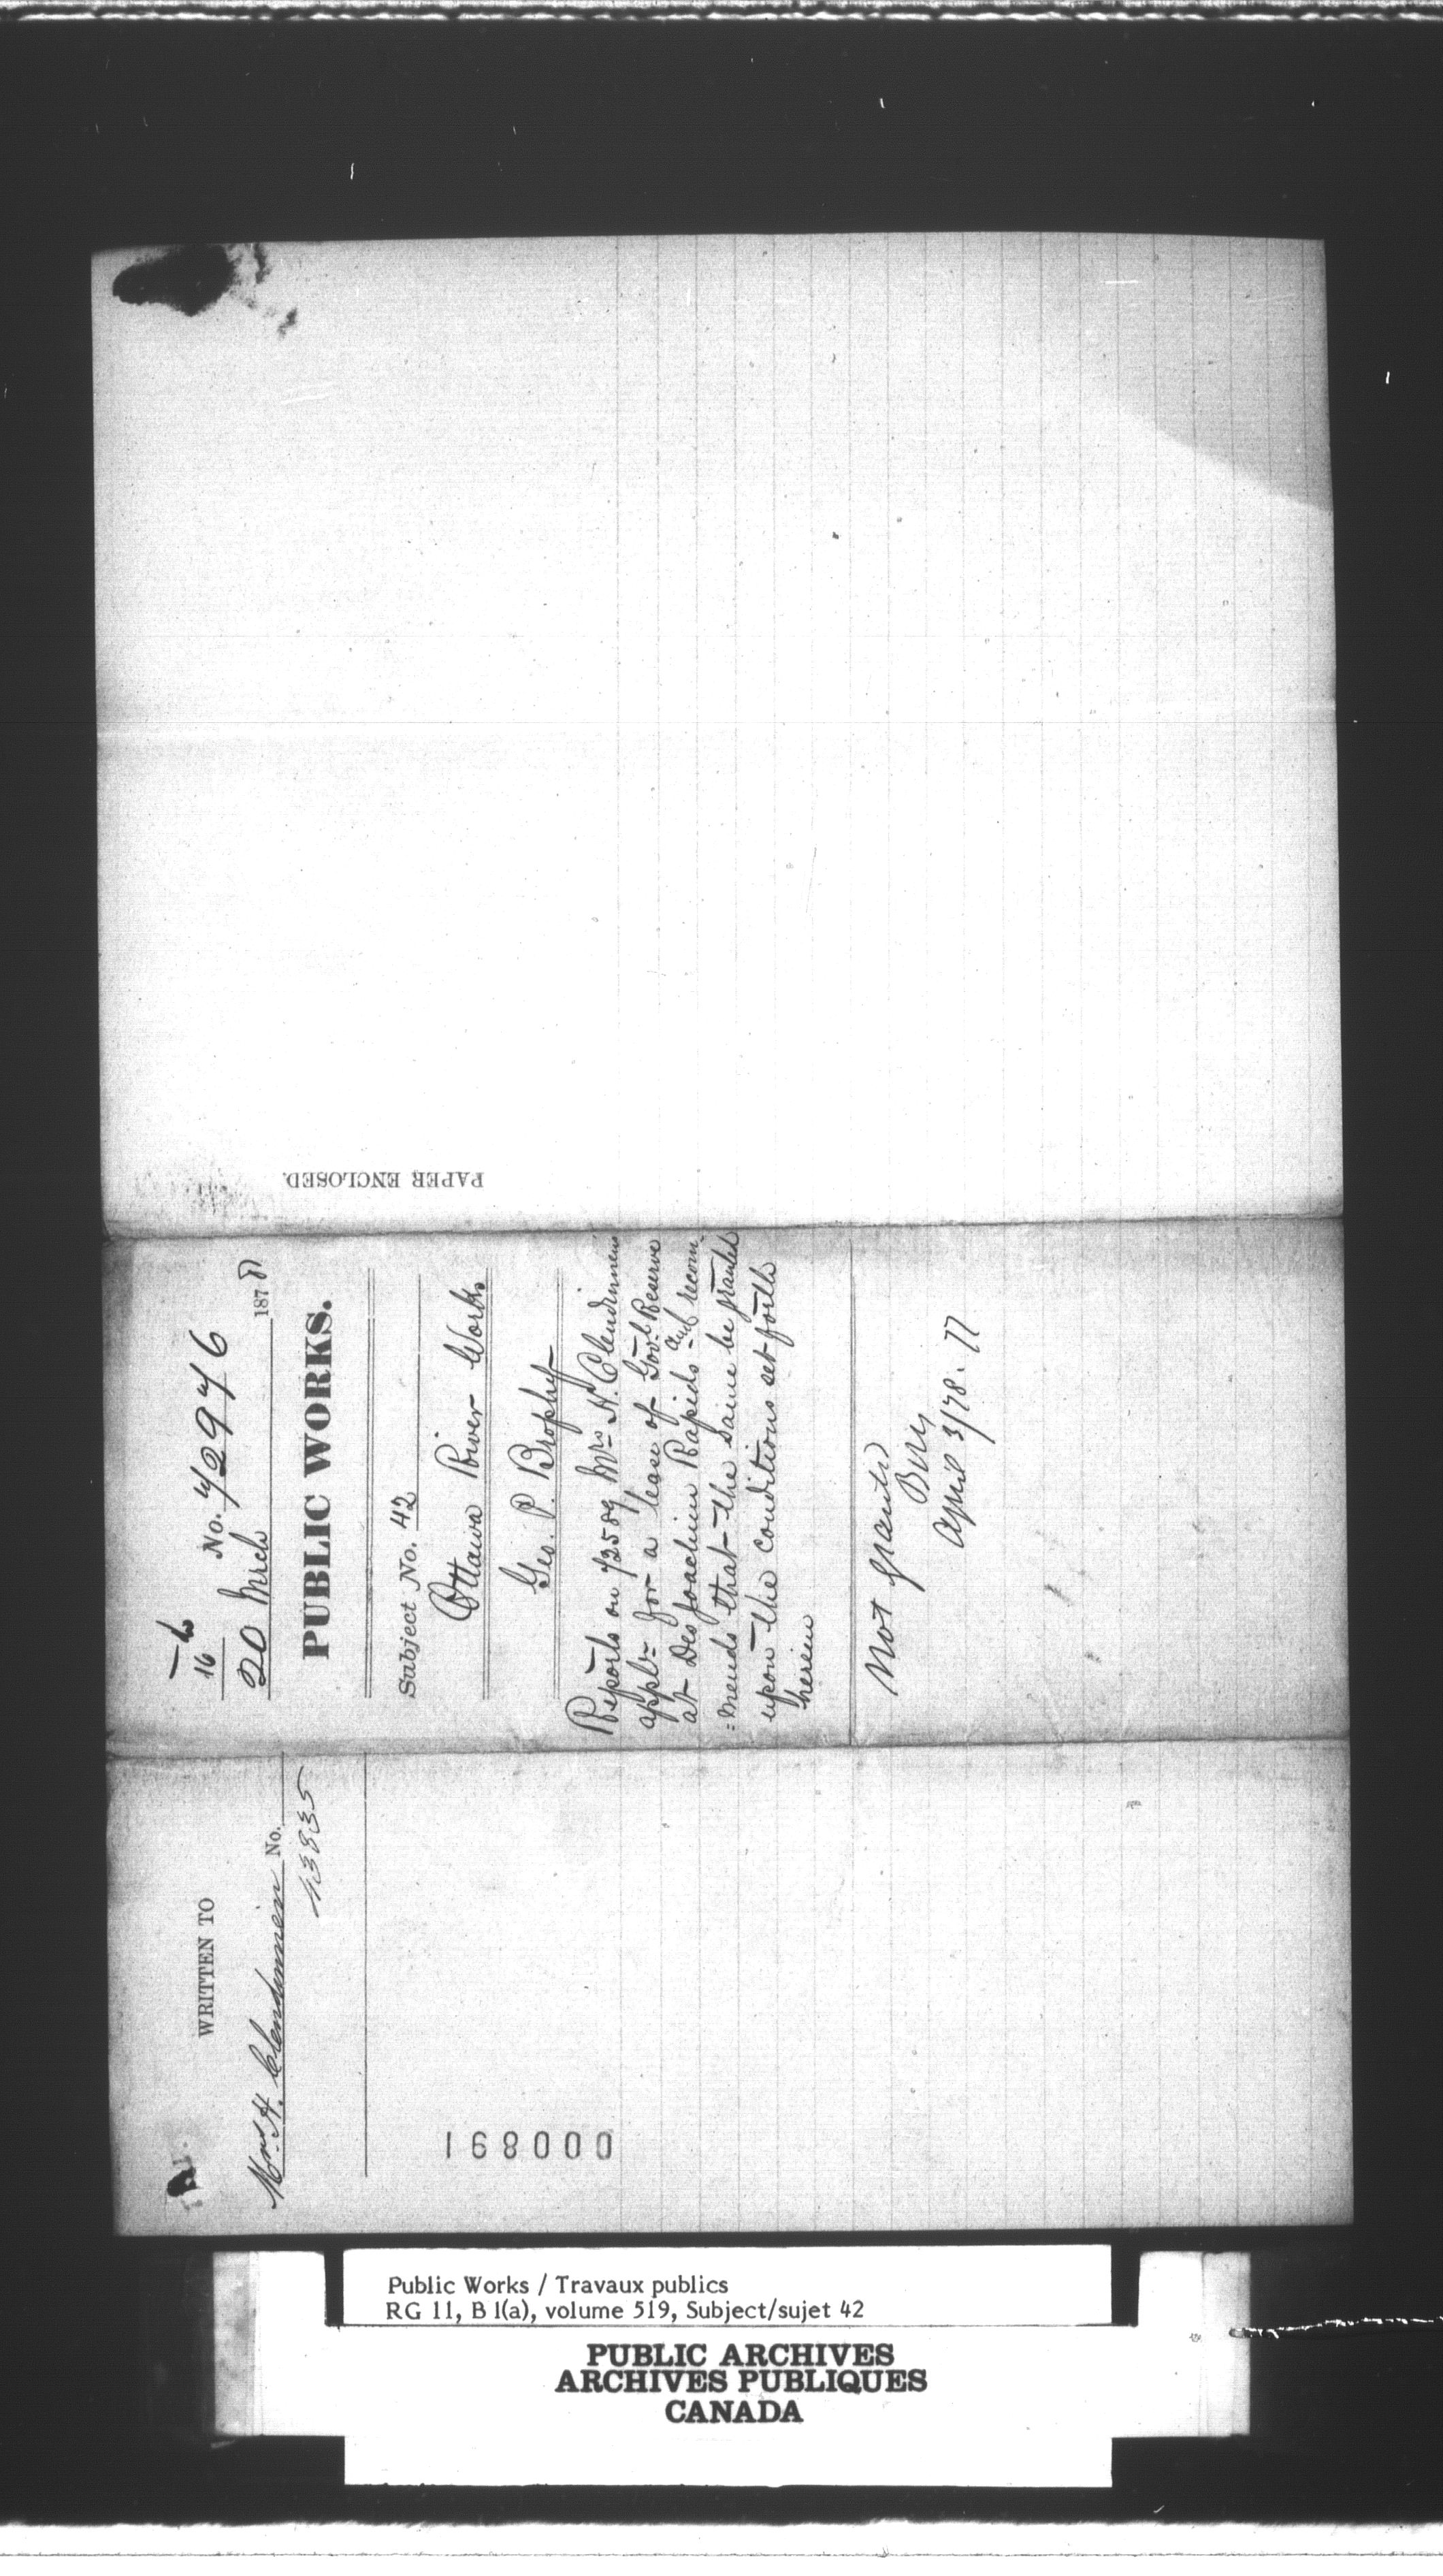 PAPER ENCLOSED.
16
No. 72976
20 Mrch 1878
PUBLIC WORKS.
Subject No. 42
Ottawa River Works
Geo. P. Brophy
Reports on 72589 Mrs H. Clendinnen
appln for a lease of Govt Reserve
at Des Joachim Rapids and recom
=mends that the same be granted
upon the conditions set forth
herein
Not granted
April 3/78. 77
WRITTEN TO
Mrs H. Clendinnen No.
43835
000891
Public Works / Travaux publics
RG 11, B 1(a), volume 519, Subject/sujet 42
PUBLIC ARCHIVES
ARCHIVES PUBLIQUES
CANADA